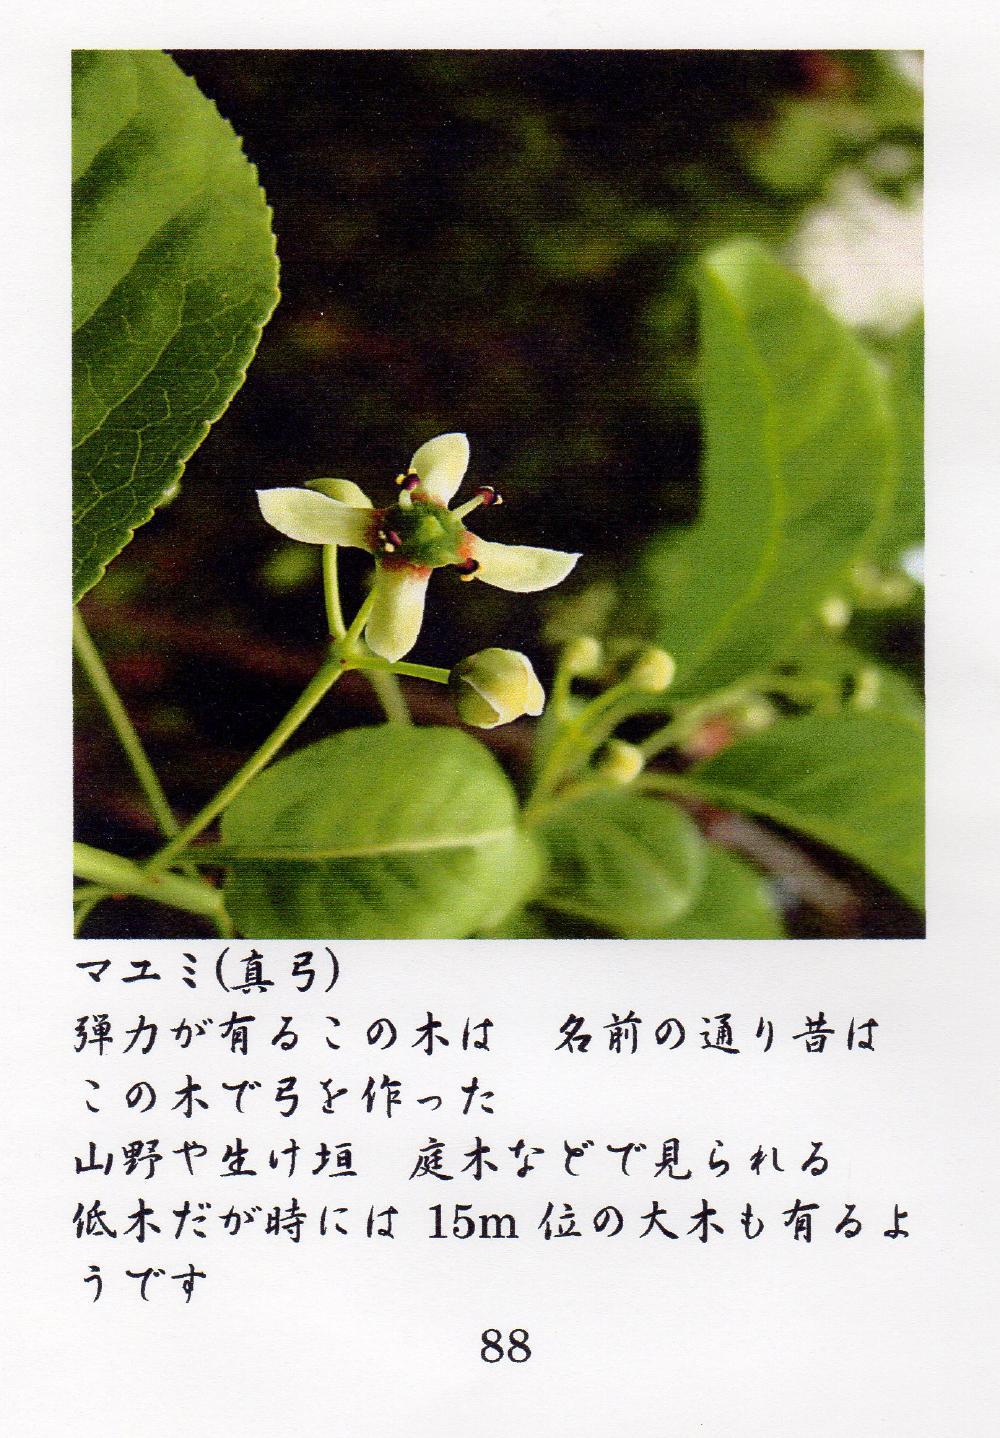 マユミ(真弓)
弾力が有るこの木は　名前の通り昔は
この木で弓を作った
山野や生け垣　庭木などで見られる
低木だが時には 15m 位の大木も有るよ
うです
88